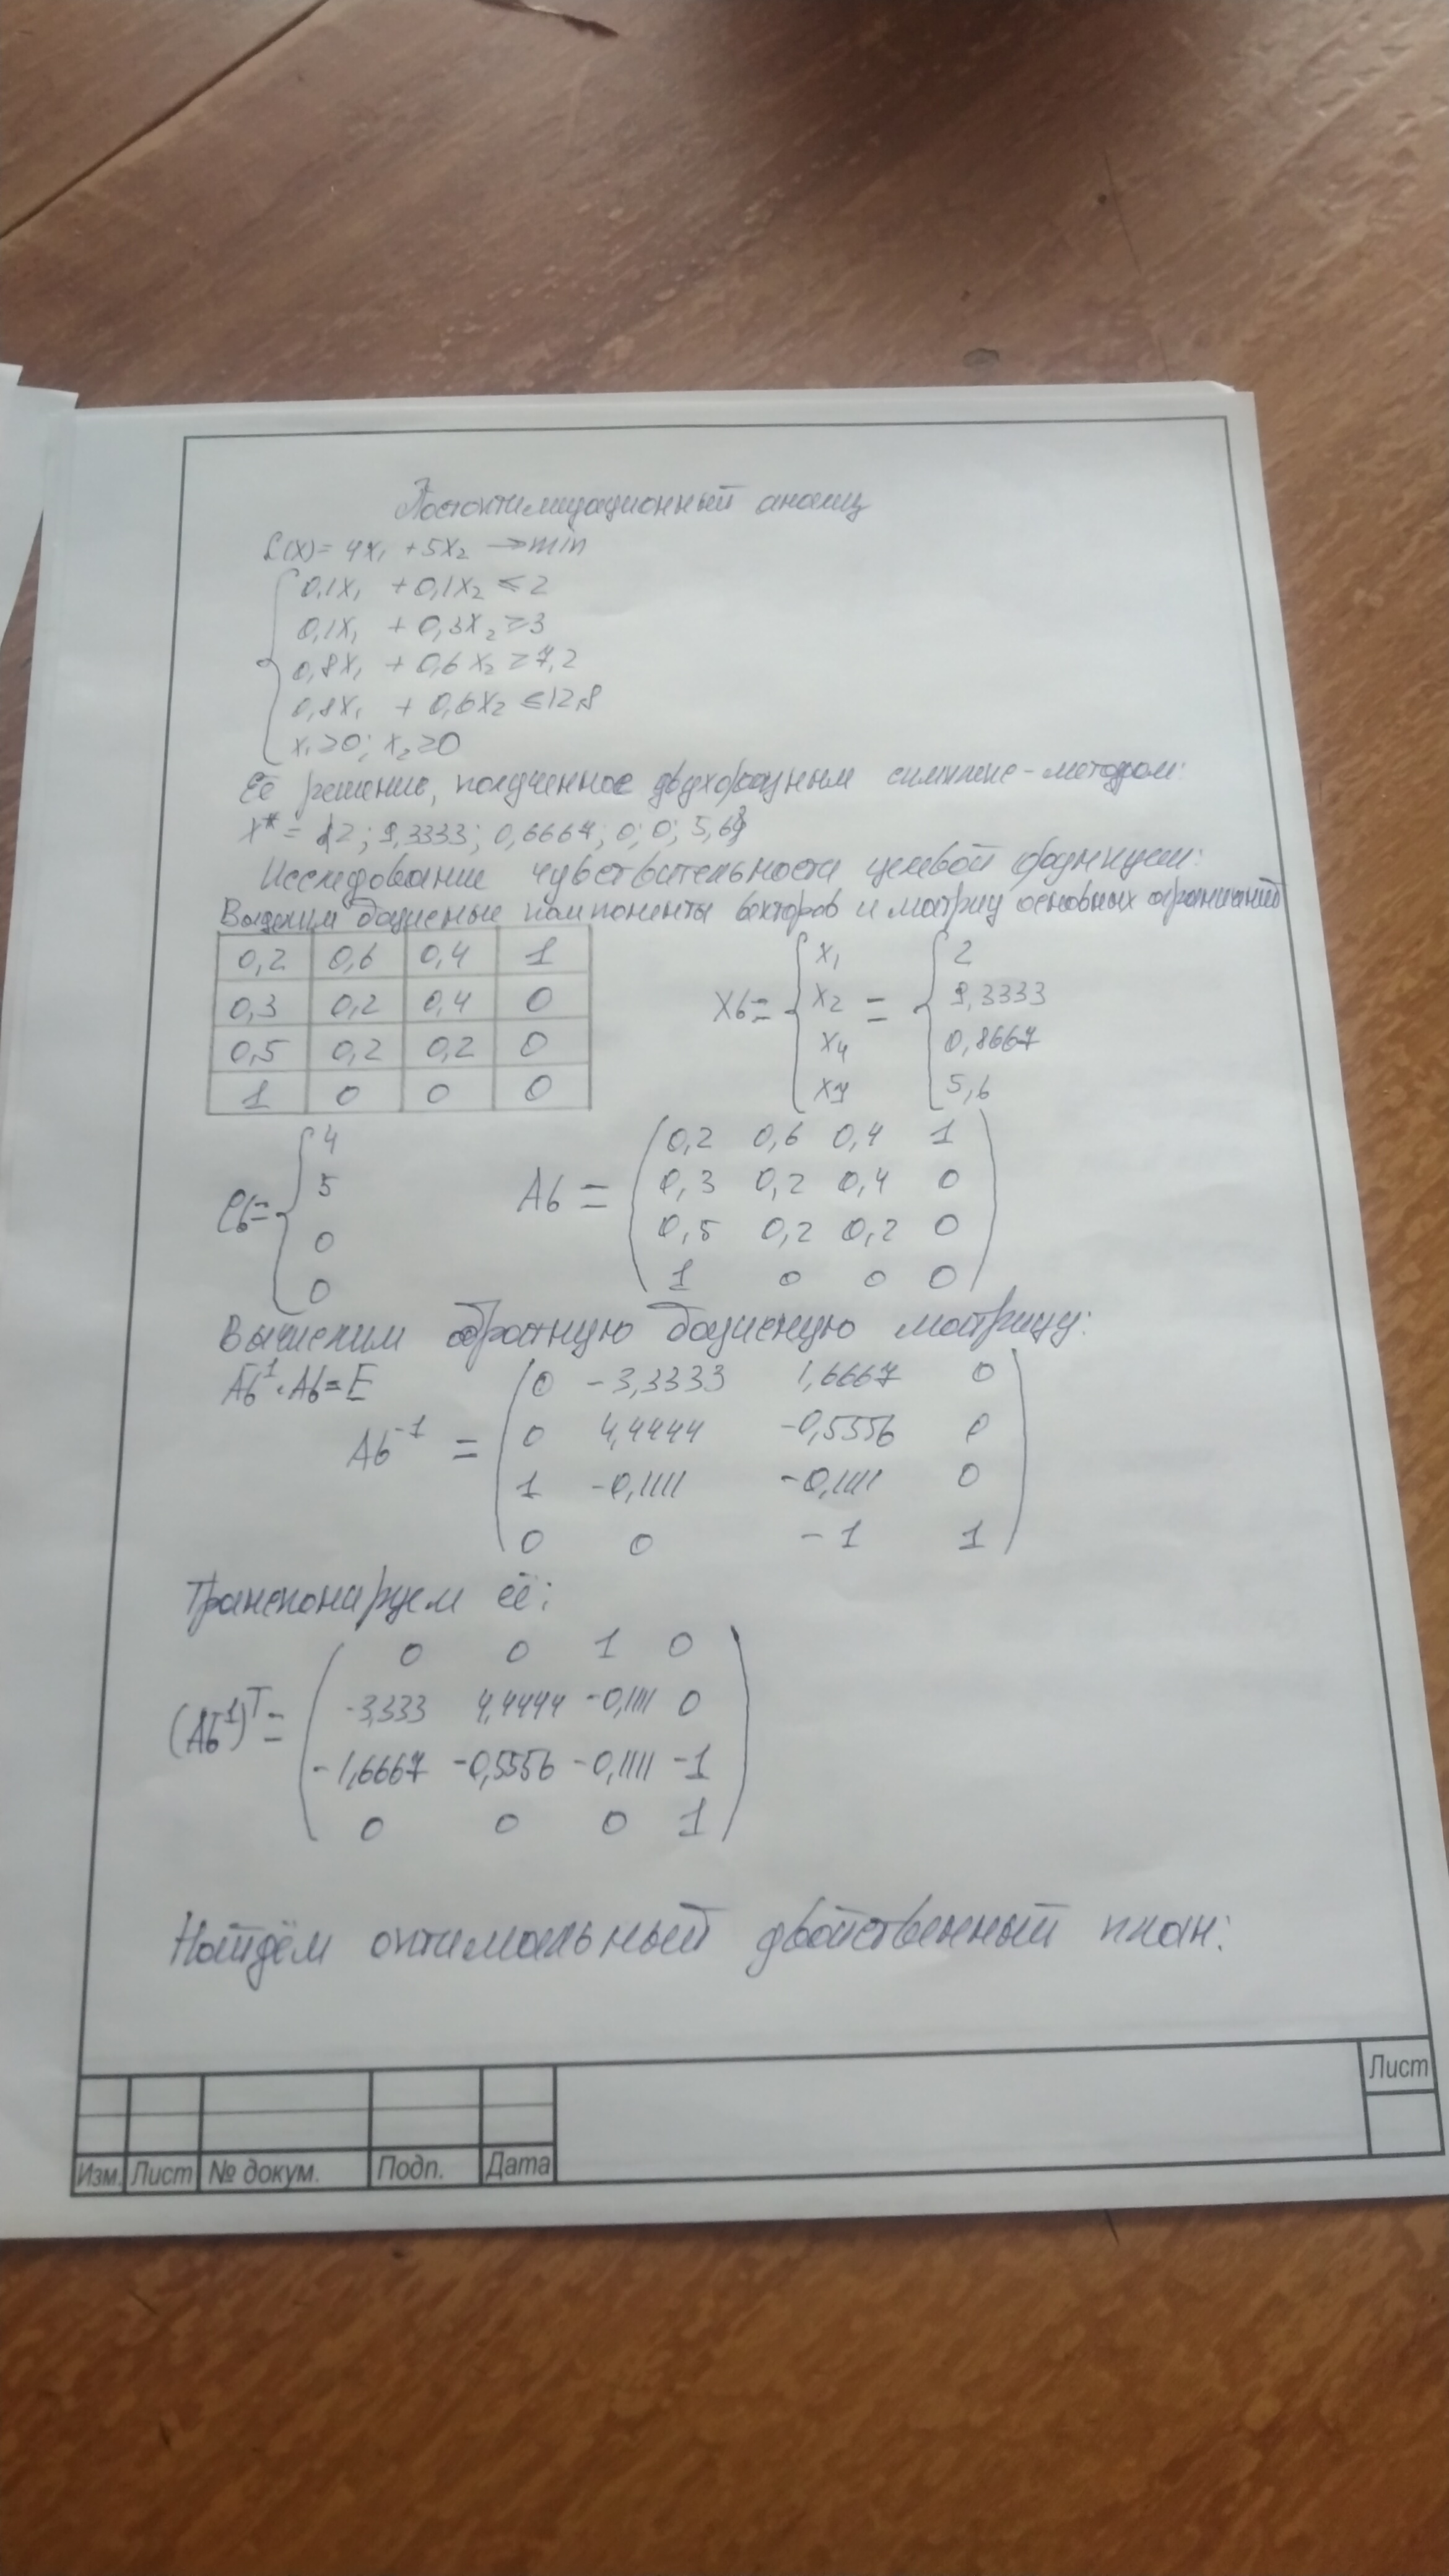 Постоптимизационный анализ
L(x)= 4x₁ +5x₂ →min
0,1x₁ +0,1x₂ ≤2
0,1x₁ + 0,3x₂ ≥3
0,8x₁ + 0,6x₂ ≥7,2
0,8x₁ + 0,6x₂ ≤12,8
x₁≥0; x₂≥0
Её решение, полученное двухфазным симплекс-методом:
x*= (2; 9,3333; 0,8667; 0; 0; 5,6)
Исследование чувствительности целевой функции:
Выделим базисные компоненты векторов и матриц основных ограничений
0,2 0,6 0,4 1
0,3 0,2 0,4 0
0,5 0,2 0,2 0
1 0 0 0
Xб= x₁ = 2
x₂ 9,3333
x₄ 0,8667
x₇ 5,6
Cб= 4
5
0
0
Aб = 0,2 0,6 0,4 1
0,3 0,2 0,4 0
0,5 0,2 0,2 0
1 0 0 0
Вычислим обратную базисную матрицу:
Aб⁻¹·Aб=E
Aб⁻¹ = 0 -3,3333 1,6667 0
0 4,4444 -0,5556 0
1 -0,1111 -0,1111 0
0 0 -1 1
Транспонируем её:
(Aб⁻¹)ᵀ= 0 0 1 0
-3,333 4,4444 -0,1111 0
-1,6667 -0,5556 -0,1111 -1
0 0 0 1
Найдём оптимальный двойственный план:
Лист
Изм. Лист № докум. Подп. Дата